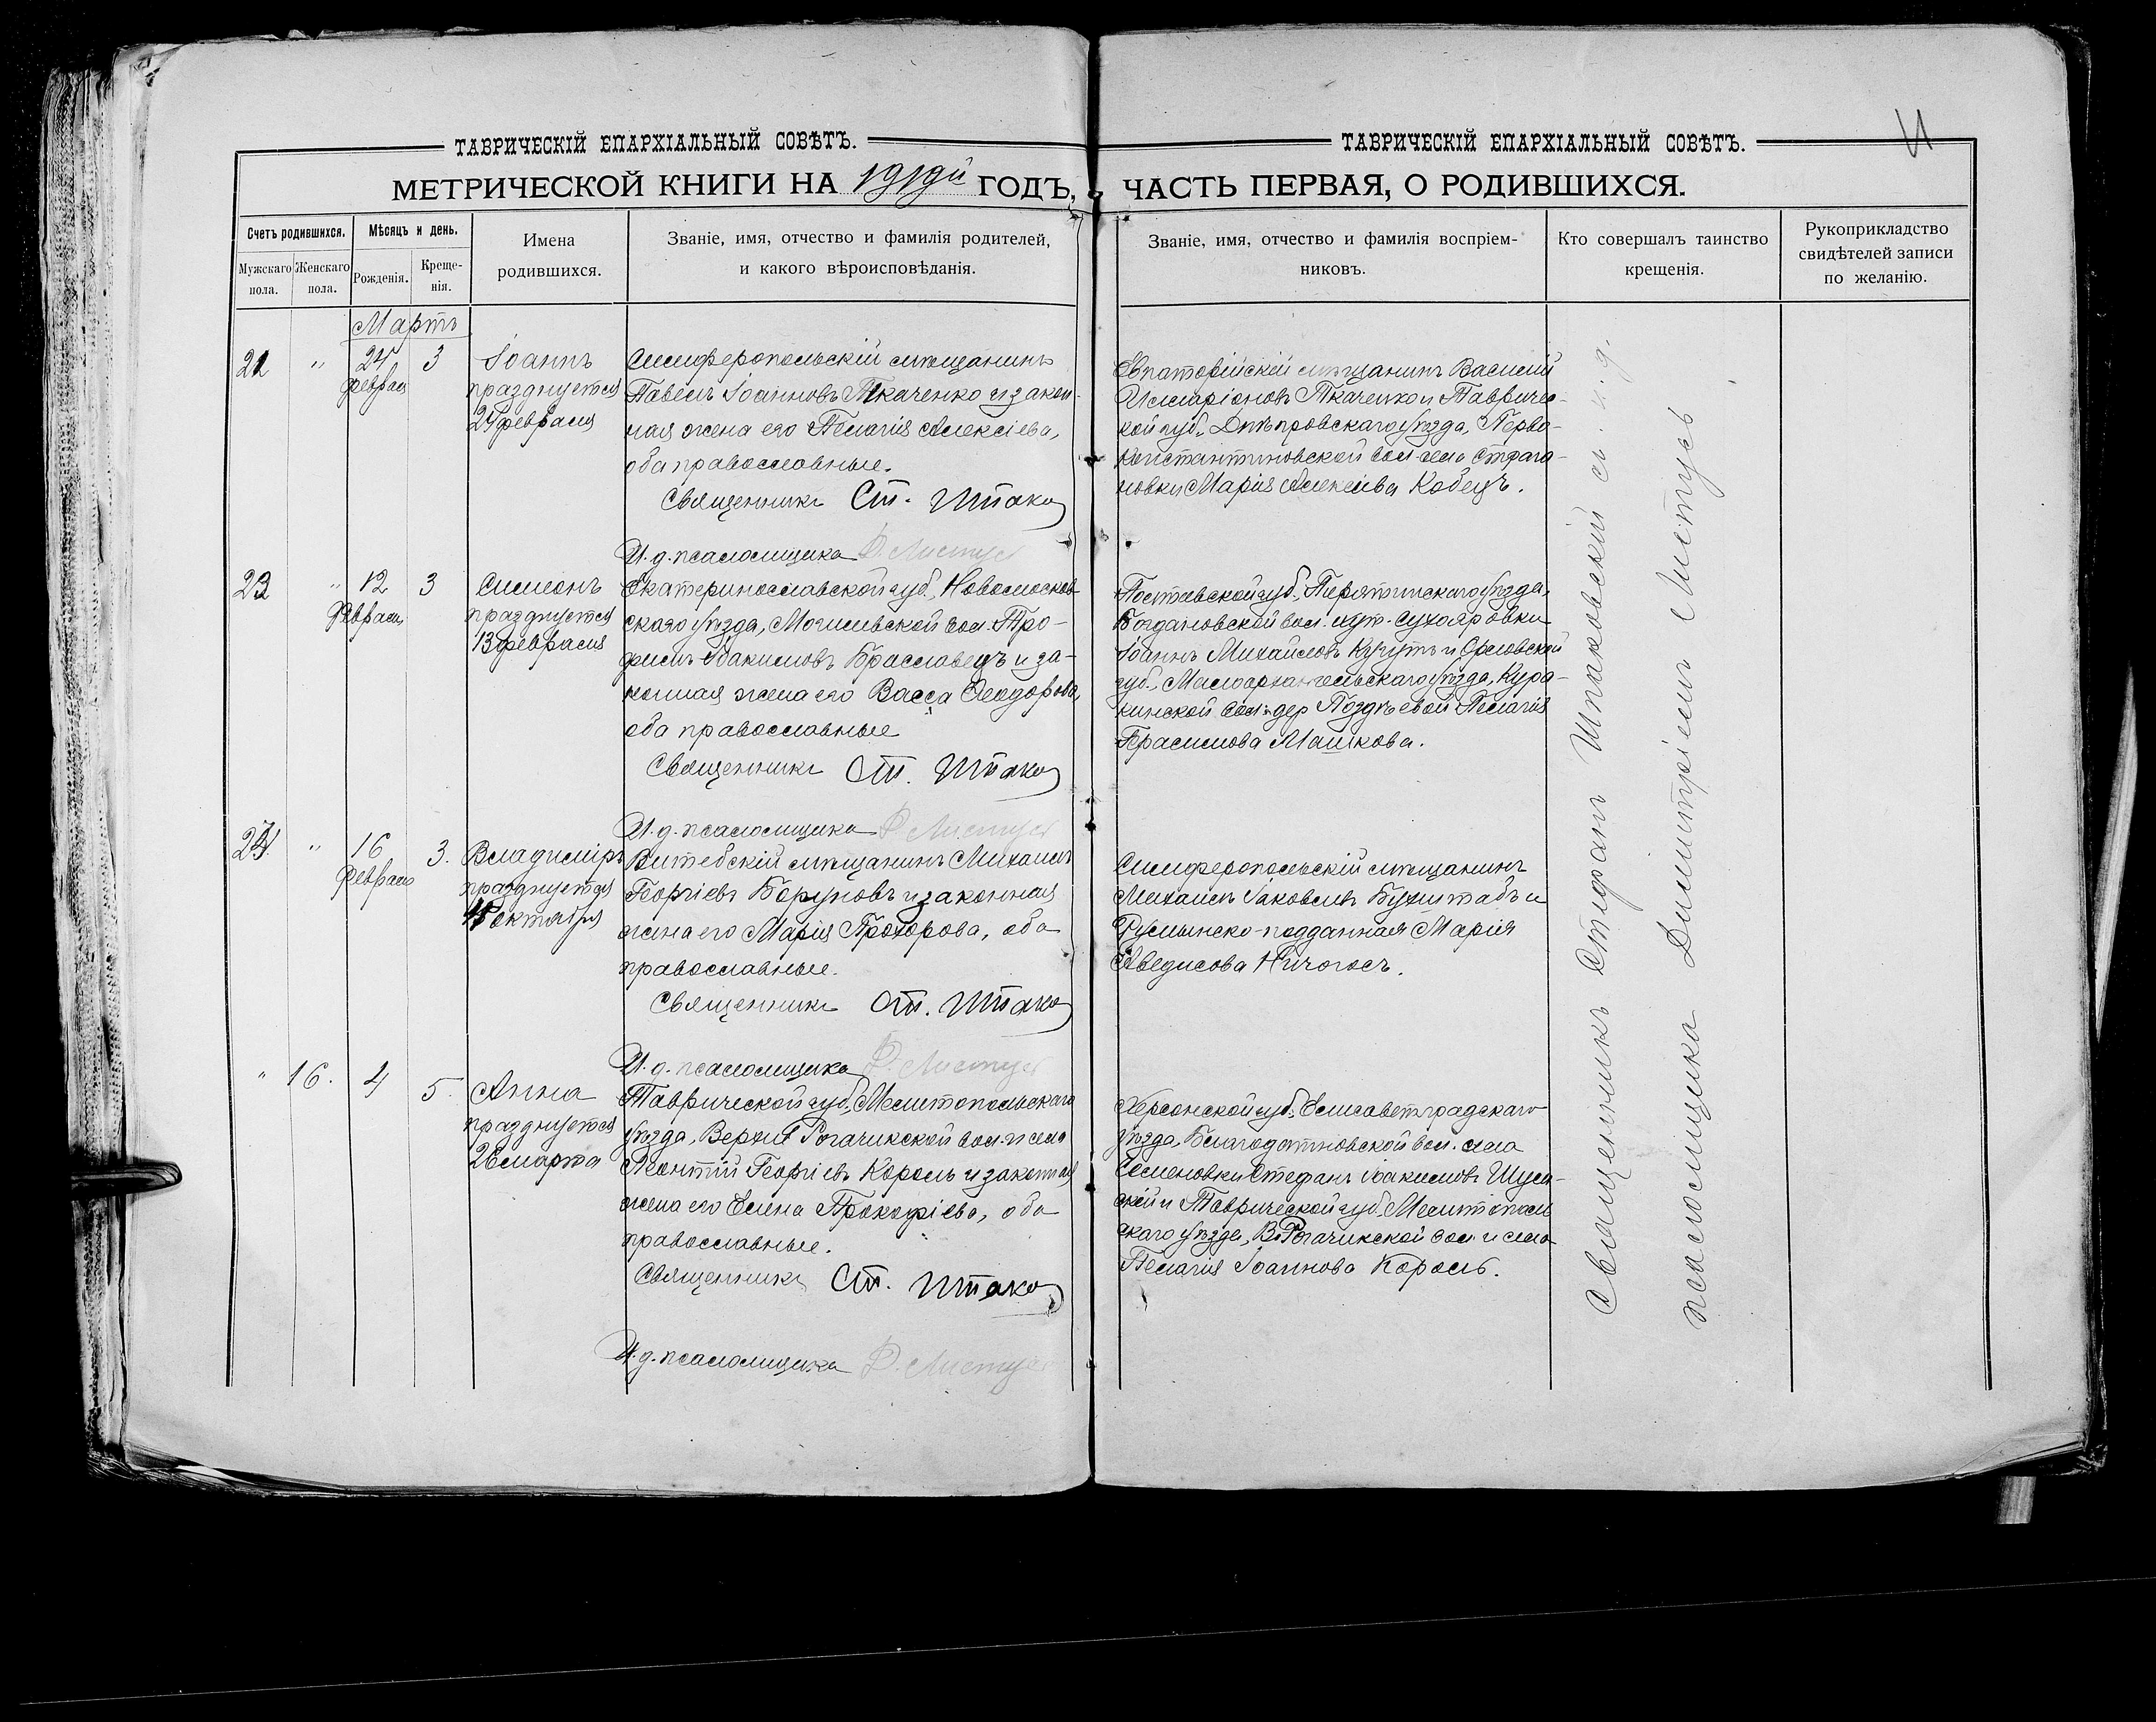 ТАВРИЧЕСКІЙ ЕПАРХІАЛЬНЫЙ СОВѢТЪ.
МЕТРИЧЕСКОЙ КНИГИ НА 1919й ГОДЪ,
Счетъ родившихся.
Мужскаго пола.
Женскаго пола.
Мѣсяцъ и день.
Рожденія.
Креще-
нія.
Имена
родившихся.
Званіе, имя, отчество и фамилія родителей,
и какого вѣроисповѣданія.
Мартъ
22 " 24 февраля 3
Іоаннъ
празднуется
24 февраля
Симферопольскій мѣщанинъ
Павелъ Іоанновъ Ткаченко и закон-
ная жена его Пелагія Алексіева,
оба православные.
Священникъ Ст. Шпако
И. д. псаломщика Д. Листусъ
23 " 12 февраля 3
Симеонъ
празднуется
13 февраля
Екатеринославской губ., Новомосков-
скаго уѣзда, Могилевской вол. Тро-
фимъ Іоакимовъ Браславецъ и за-
конная жена его Васса Ѳеодорова,
оба православные
Священникъ Ст. Шпако
И. д. псаломщика Д. Листусъ
24 " 16 февраля 3.
Владиміръ
празднуется
4 октября
Витебскій мѣщанинъ Михаилъ
Георгіевъ Боруновъ и законная
жена его Марія Прохорова, оба
православные.
Священникъ Ст. Шпако
И. д. псаломщика Д. Листусъ
" 16. 4 5.
Анна
празднуется
26 марта
Таврической губ., Мелитопольскаго
уѣзда, Верхне Рогачикской вол. и села
Леонтій Георгіевъ Король и законная
жена его Елена Прокофіева, оба
православные.
Священникъ Ст. Шпако
И. д. псаломщика Д. Листусъ
ТАВРИЧЕСКІЙ ЕПАРХІАЛЬНЫЙ СОВѢТЪ.
ЧАСТЬ ПЕРВАЯ, О РОДИВШИХСЯ.
Званіе, имя, отчество и фамилія воспріем-
никовъ.
Кто совершалъ таинство
крещенія.
Рукоприкладство
свидѣтелей записи
по желанію.
Евпаторійскій мѣщанинъ Василій
Илларіоновъ Ткаченко и Тавричес-
кой губ., Днѣпровскаго уѣзда, Перво-
константиновской вол. села Строга-
новки Марія Алексіева Кобецъ.
Полтавской губ., Пирятинскаго уѣзда,
Богдановской вол. хут. Сухояровки
Іоаннъ Михайловъ Кугутъ и Орловской
губ., Малоархангельскаго уѣзда, Кура-
кинской вол. дер. Поздѣевой Пелагія
Герасимова Машкова.
Симферопольскій мѣщанинъ
Михаилъ Іаковлевъ Бухштабъ и
Румынско-подданная Марія
Аведисова Ничогосъ.
Херсонской губ., Елисаветградскаго
уѣзда, Благодатновской вол. села
Семеновки Стефанъ Іоакимовъ Шуль-
скій и Таврической губ. Мелитополь
скаго уѣзда, В. Рогачикской вол. и села
Пелагія Іоаннова Король.
Священникъ Стефанъ Шпаковскій съ и. д.
псаломщика Димитріемъ Листусъ